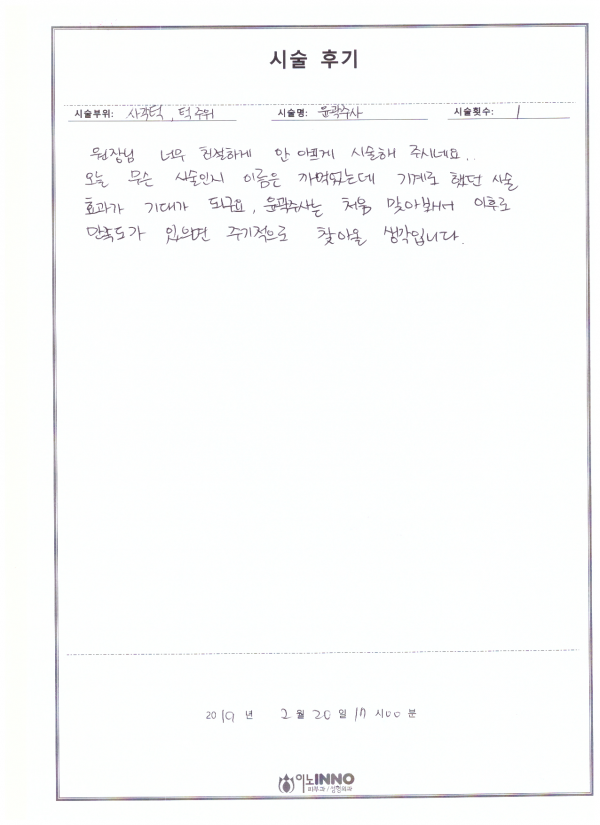 시술 후기
시술부위: 사각턱, 턱주위 시술명: 윤곽주사 시술횟수: 1
원장님 너무 친절하게 안 아프게 시술해 주시네요..
오늘 무슨 시술인지 이름은 까먹었는데 기계로 했던 시술
효과가 기대가 되구요, 윤곽주사는 처음 맞아봐서 이후로
만족도가 있으면 주기적으로 찾아올 생각입니다.
2019 년 2 월 20 일 17 시 00 분
이노INNO
피부과/성형외과